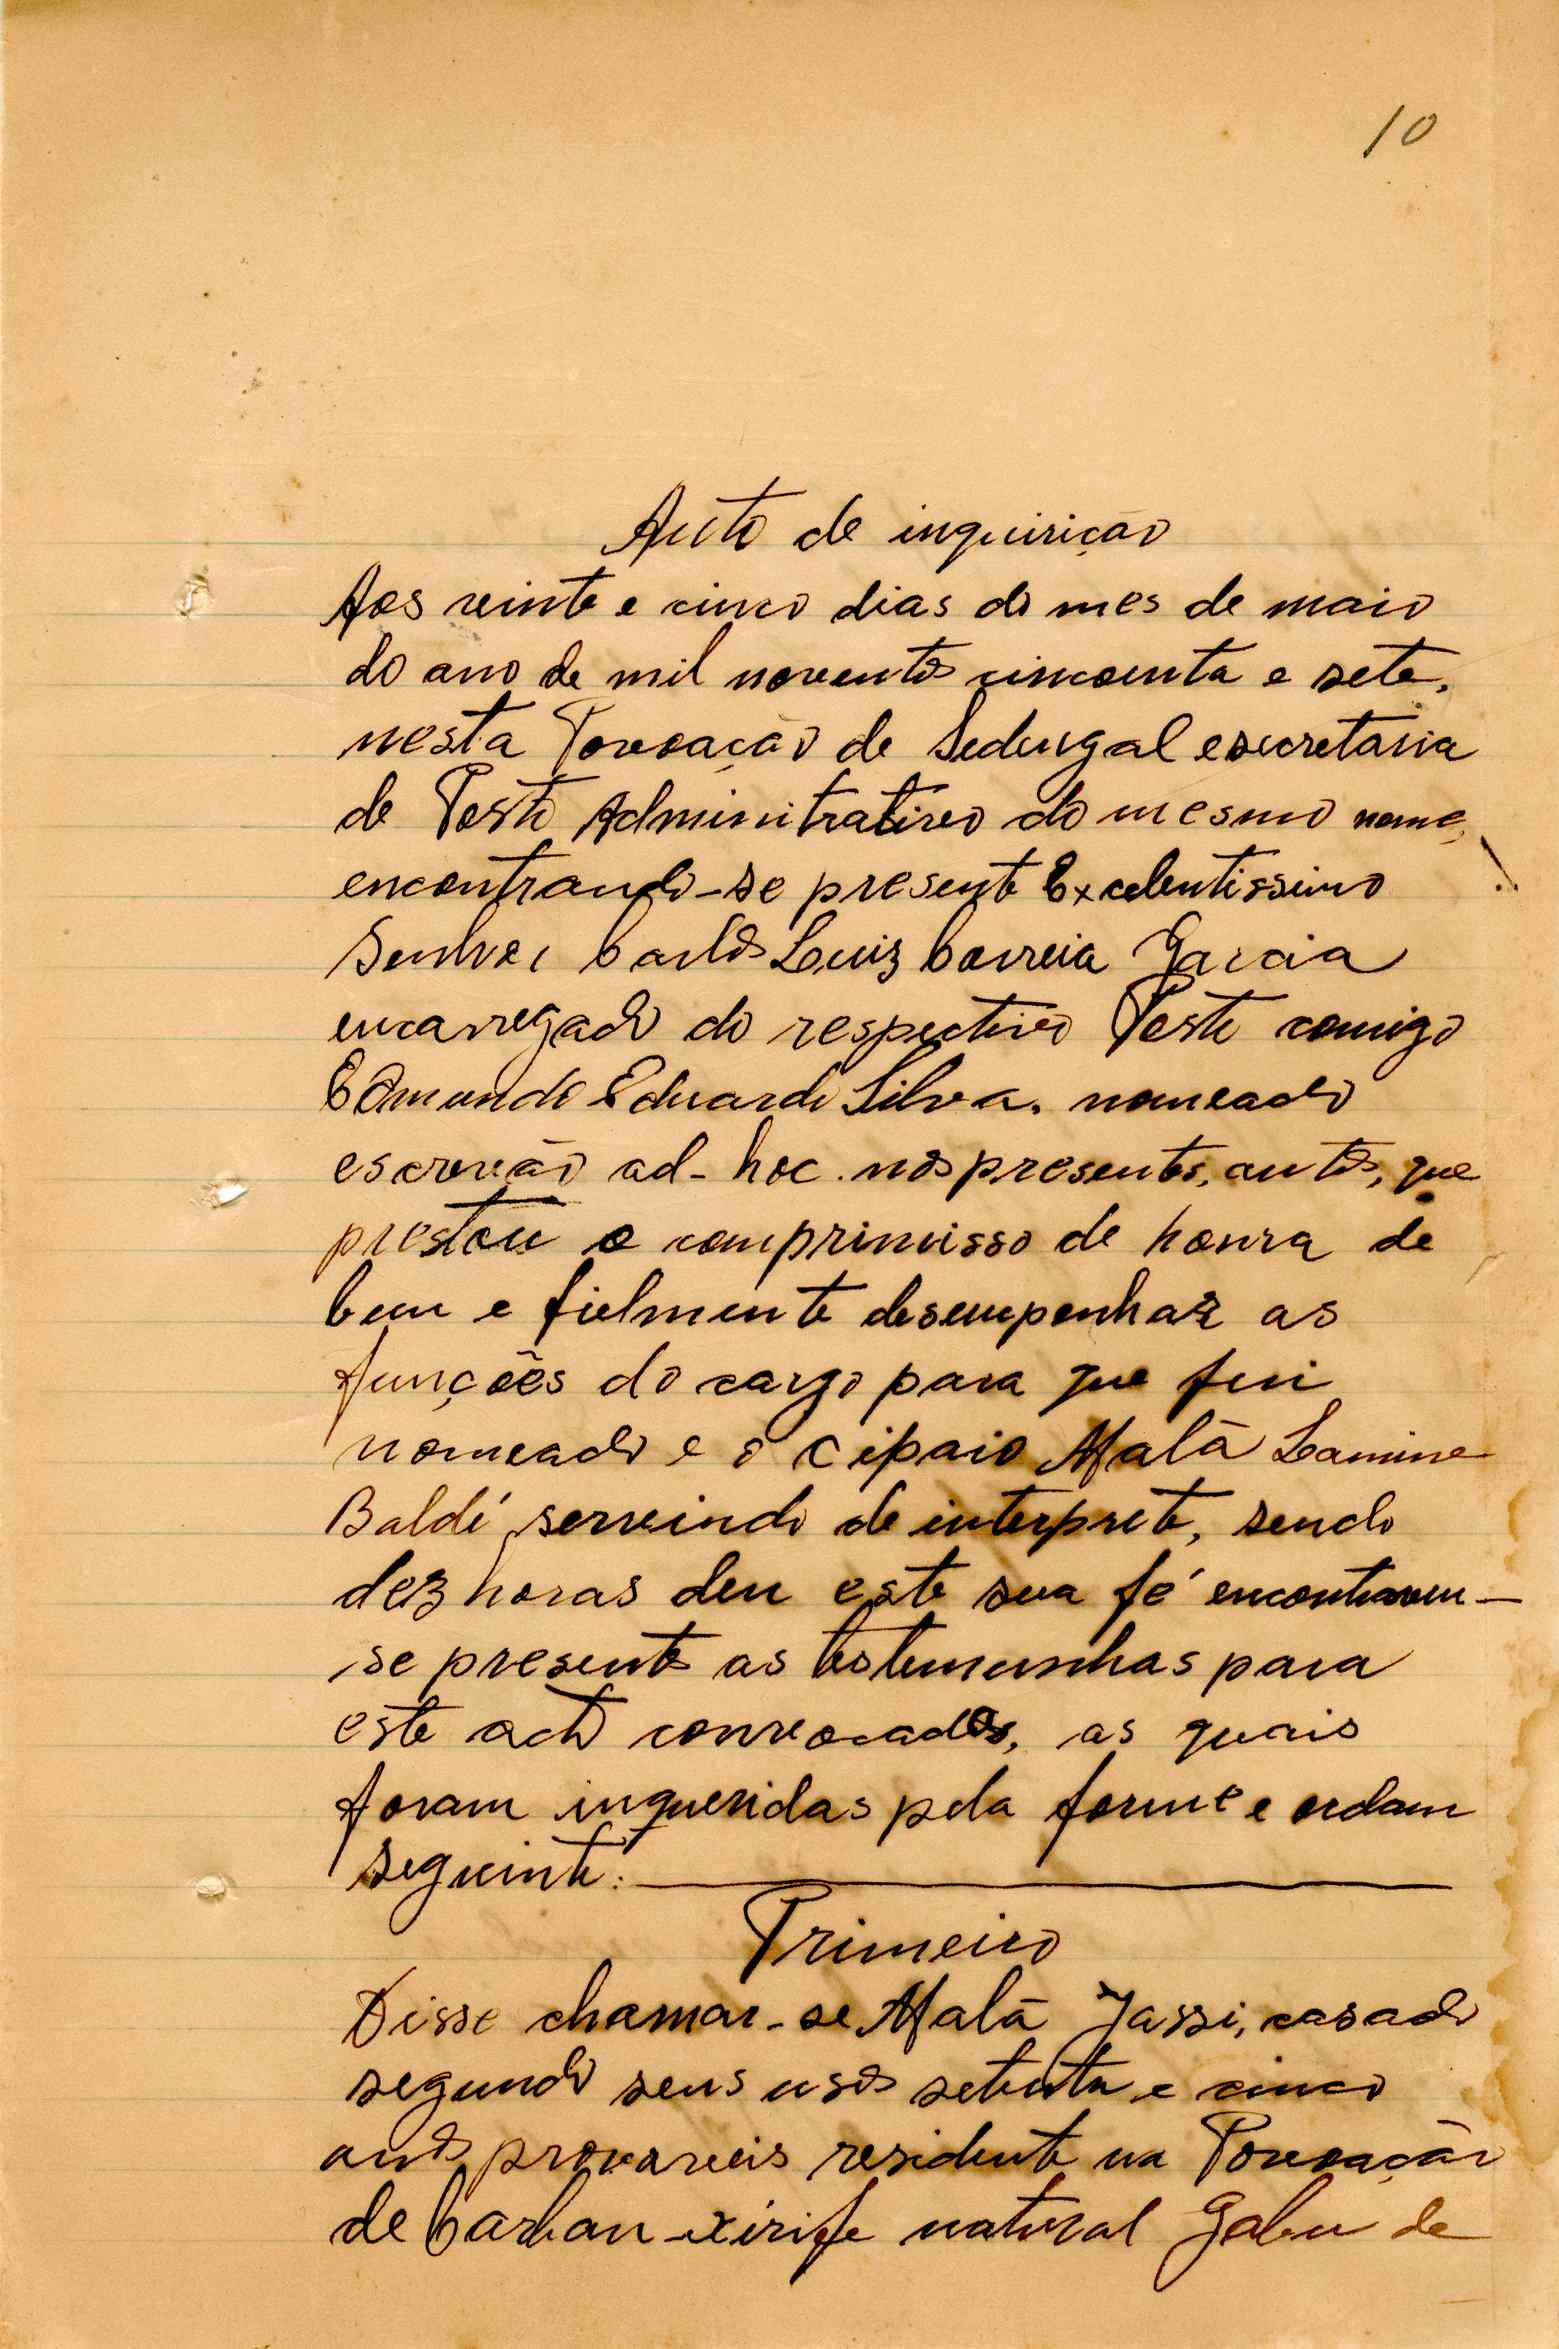 10
Auto de inquirição
Aos veinte e cinco dias do mes de maio
do ano de mil noventos cincoenta e sete,
nesta Povoação de Sedengal e secretaria
de Posto Adminitrativo do mesmo nome,
encontrando-se presente Excelentissimo
Senhor Carlos Luiz Correia Garcia
encarregado do respectivo Posto comigo
Edmundo Eduardo Silva, nomeado
escrevão ad-hoc nos presentes, autos, que
prestou o comprimisso de honra de
bem e fielmente desempenhar as
funções do cargo para que fui
nomeado e o cipaio Malã Lamine
Baldé serveindo de interprete, sendo
dez horas deu este sua fé encontravem-
se presentes as testemunhas para
este acto convocados, as quais
foram inqueridas pela forme e ordem
seguinte:
Primeiro
Disse chamar-se Malã Jassi, casado
segundo seus usos setenta e cinco
anos provaveis residente na Povoação
de Barban-xirife natural Gabu de